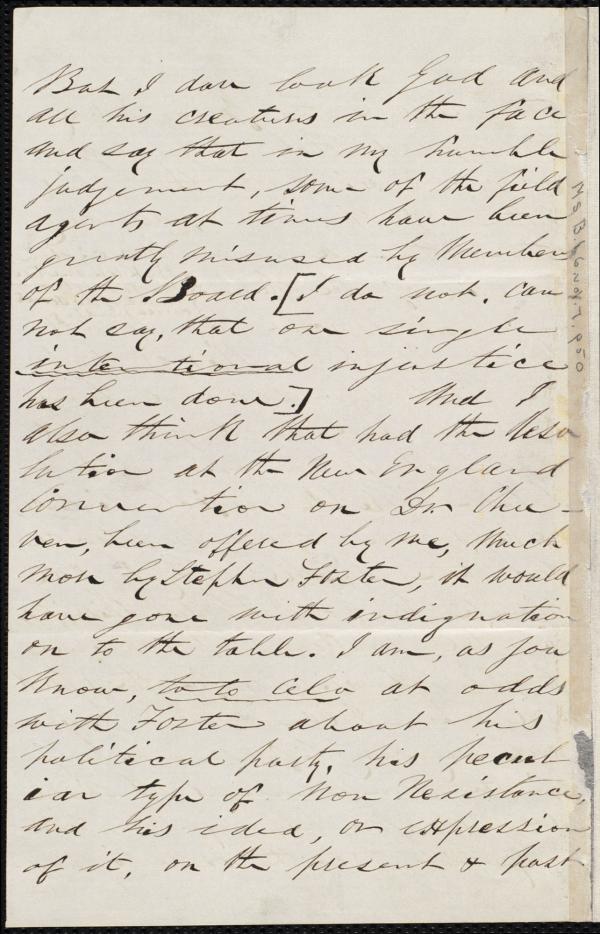 But I dare look God and
all his creatures in the face
and say that in my humble
judgement, some of the field
agents at times have been
greatly misused by Members
of the Board. [I do not, can
not say, that one single
intentional injustice
has been done.] And I
also think that had the Reso
lution at the New England
Convention on Dr. Chee-
ver, been offered by me, much
more by Stephen Foster, it would
have gone with indignation
on to the table. I am, as you
know, toto celo at odds
with Foster about his
political party, his pecul
iar type of Non Resistance,
and his idea, or expression
of it, on the present & past
Ms.B.1.6